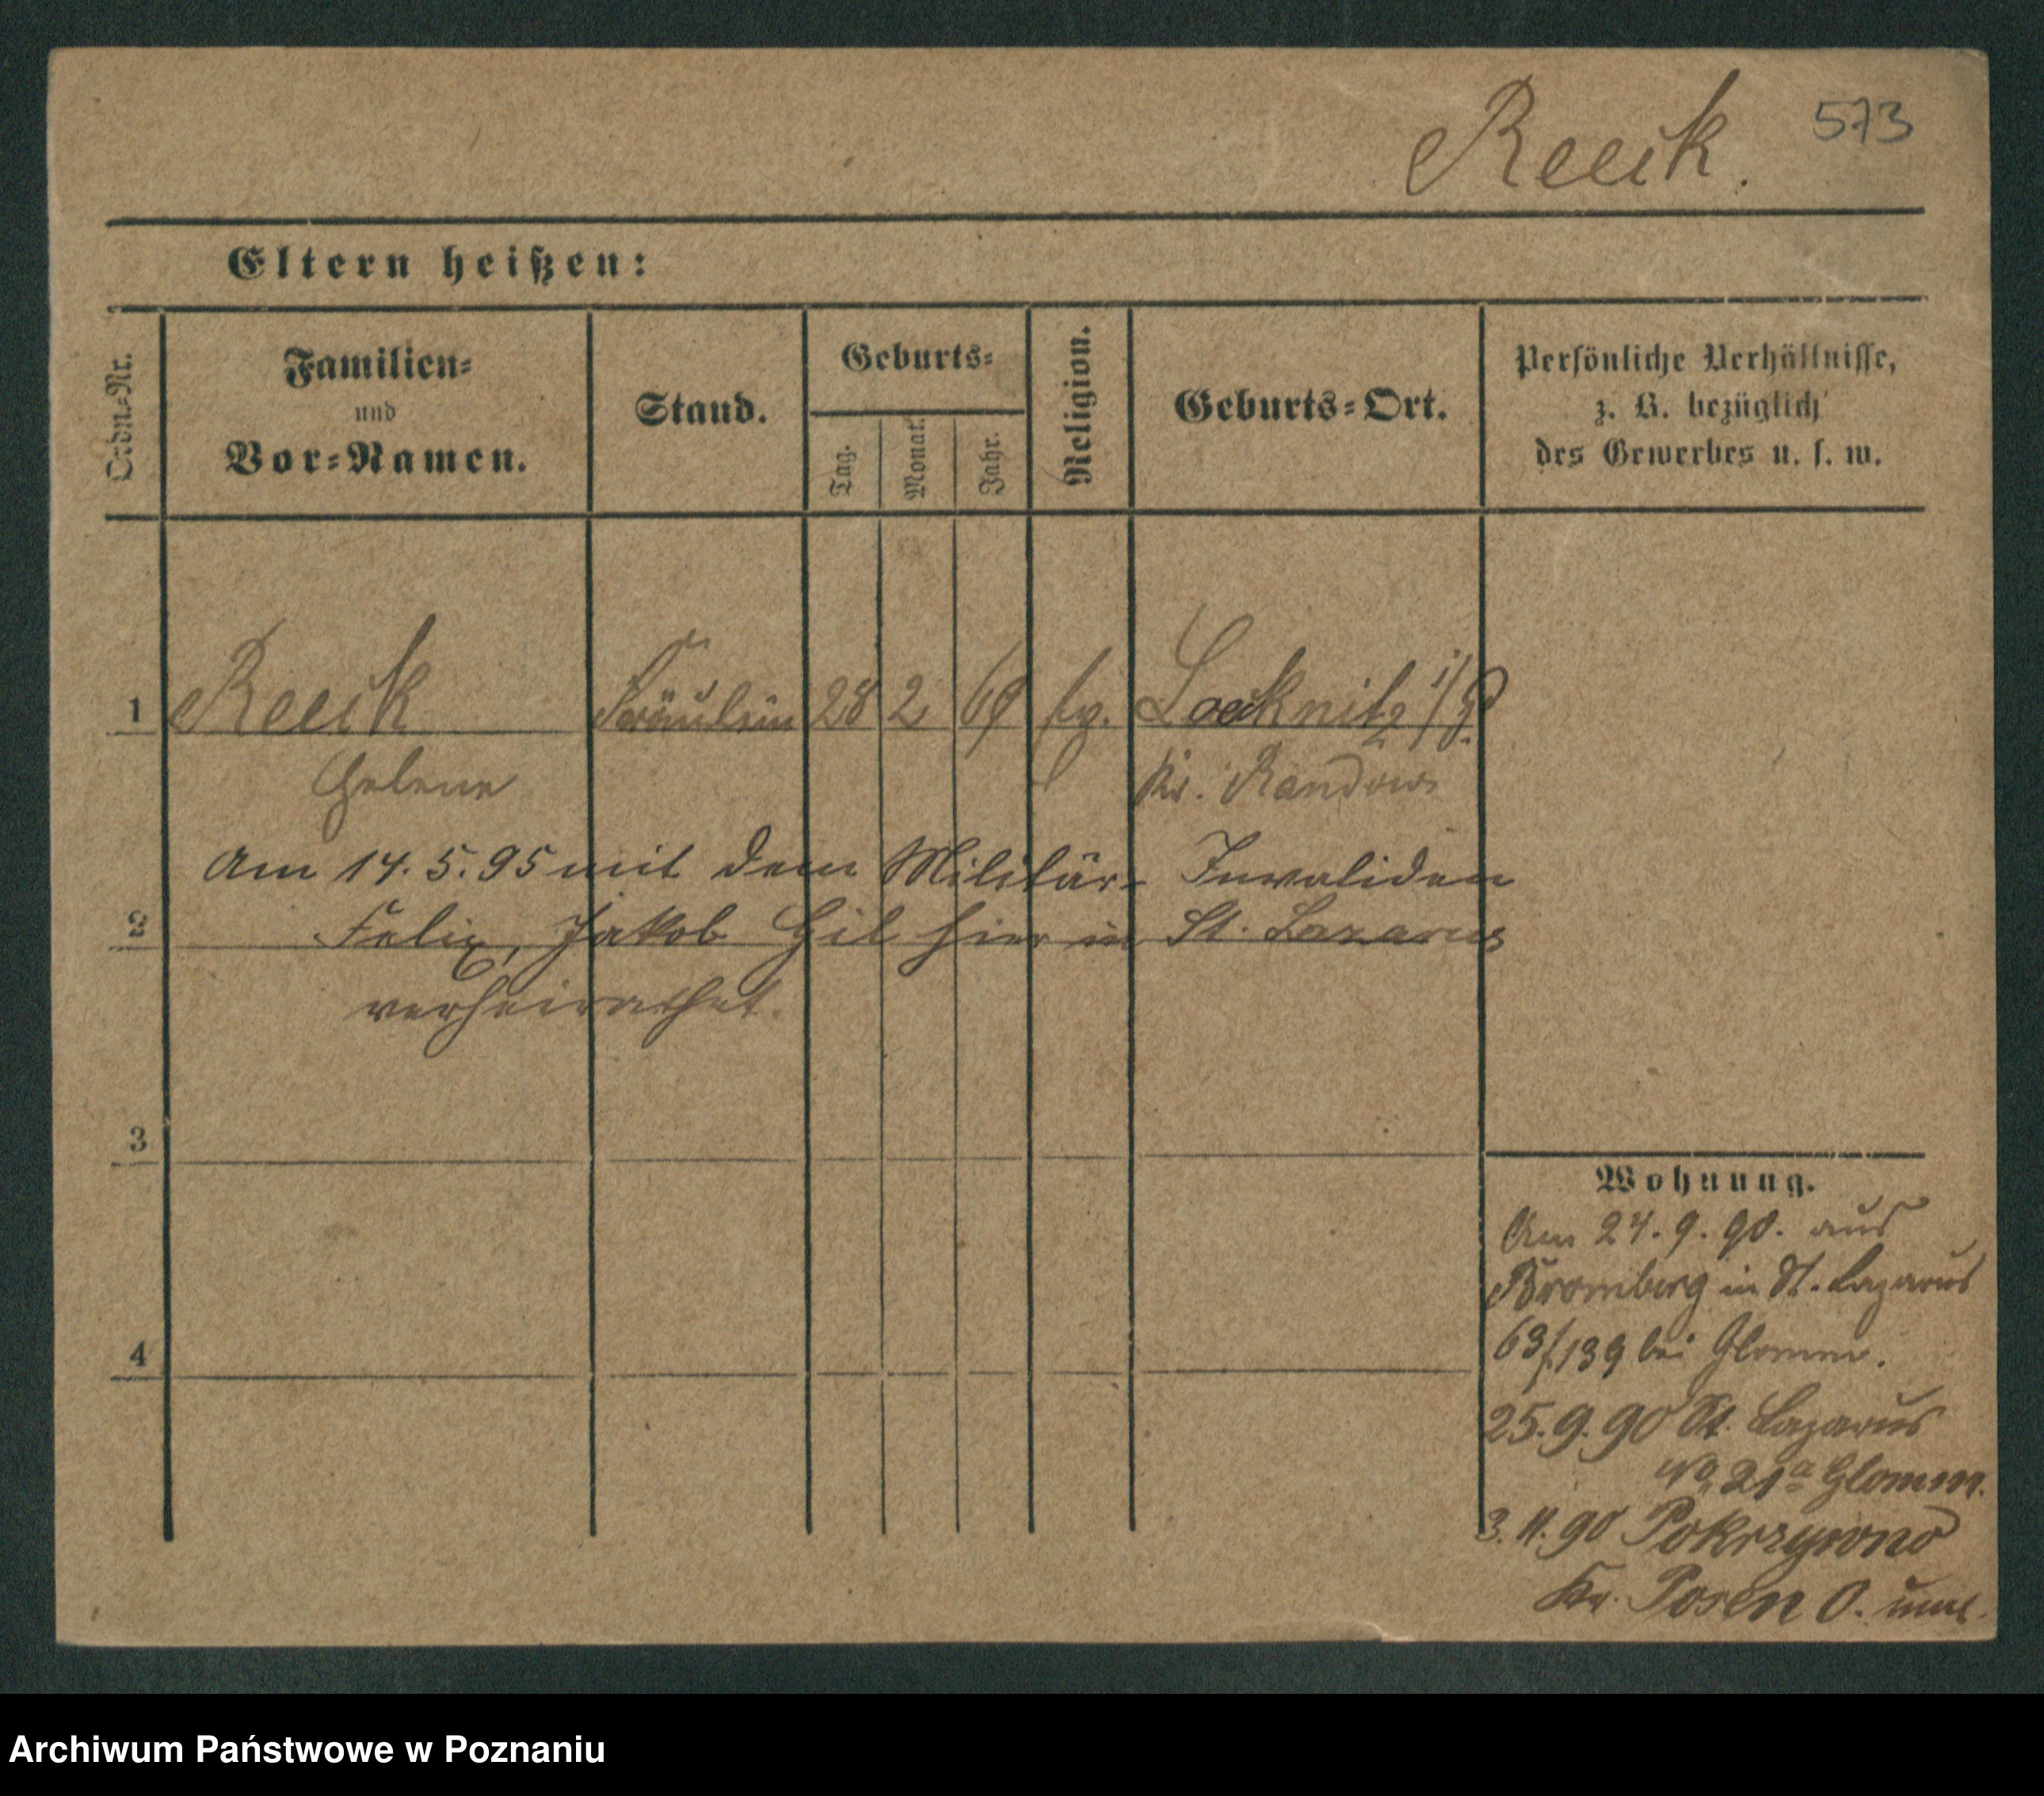 Reeck.
573
Eltern heißen:
Ordn.-Nr.
Familien-
und
Vor-Namen.
Stand.
Geburts-
Tag.
Monat.
Jahr.
Religion.
Geburts-Ort.
Persönliche Verhältnisse,
z. B. bezüglich
des Gewerbes u. s. w.
1 Reeck Fräulein 28 2 69 ev. Loecknitz i/P.
Helene Kr. Randow
Am 14.5.95 mit dem Militär-Invaliden
2 Felix, Jakob Gil hier in St. Lazarus
verheirathet.
3
4
Wohnung.
Am 24.9.90. aus
Bromberg in St. Lazarus
63/139 bei Glomm.
25.9.90 St. Lazarus
No 21a Glomm.
3.11.90 Pokrzywno
Kr. Posen O.
Archiwum Państwowe w Poznaniu